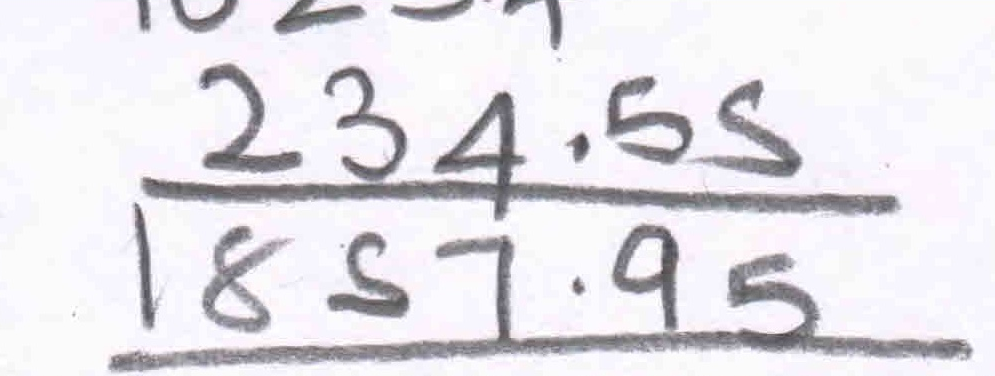 234.55
1857.95